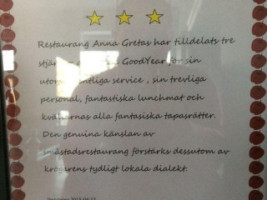 Restaurang Anna Gretas har tilldelats tre
GoodYear för sin
service , sin trevliga
personal, fantastiska lunchmat och
kvällarnas alla fantasiska tapasrätter.
Den genuina känslan av
småstadsrestaurang förstärks dessutom av
tydligt lokala dialekt.